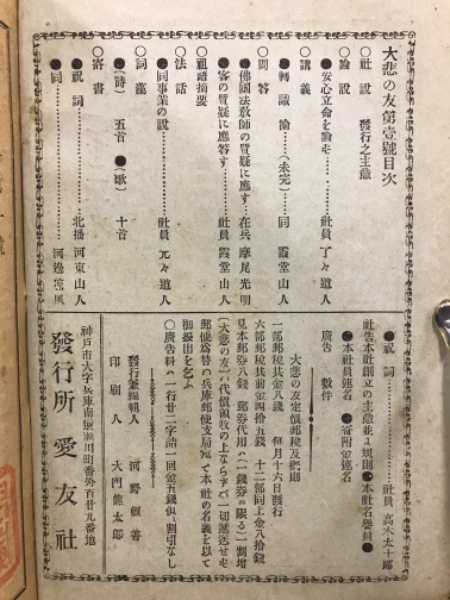 大悲の友第壹號目次
○社説 發行之主意
○論説
●安心立命を論ず……社員 了々道人
○講義
●轉識論……(未完)……同 霞堂山人
○問答
●佛國法教師の質疑に應す…在兵 摩尾光明
●客の質疑に應答す……社員 霞堂山人
○祖語摘要
○法話
●同事業の説……社員 兀々道人
○詞藻
●(詩) 五首 ●(歌) 十首
○寄書
●祝詞……北播 河東山人
●同……河邊 風
●祝詞……社員 高木太十郎
社告本社創立の主意並規則●本社名譽員●
●本社員連名 ●寄附金連名
廣告 數件
大悲の友定價郵税及規則
一部郵税共金八錢 毎月十六日發行
六部郵税共前金四拾五錢 十二部同上金八拾錢
見本郵券八錢 郵券代用ハ(一錢券ニ限る)一割増
(大悲の友)ハ代價領收の上ならでハ一切遞送せず
郵便爲替ハ兵庫郵便支局宛て本社の名義を以て
御振出を乞ふ
○廣告料ハ一行廿二字詰一回金五錢但割引なし
發行兼編輯人 河野 善
印刷人 大門 太郎
神戸市大字兵庫南 川町番外百廿九番地
發行所 愛友社